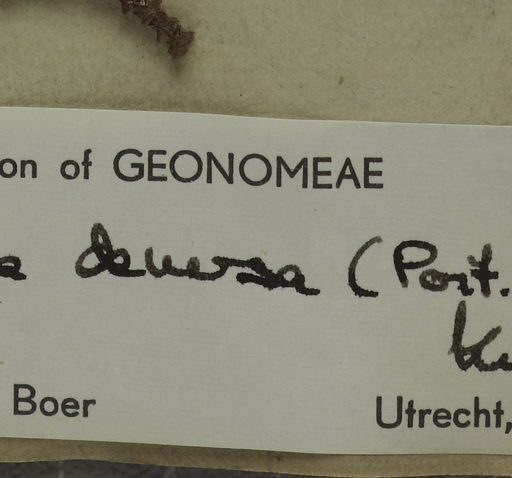 on of GEONOMEAE
a deversa (Poit.
Ku
Boer
Utrecht,